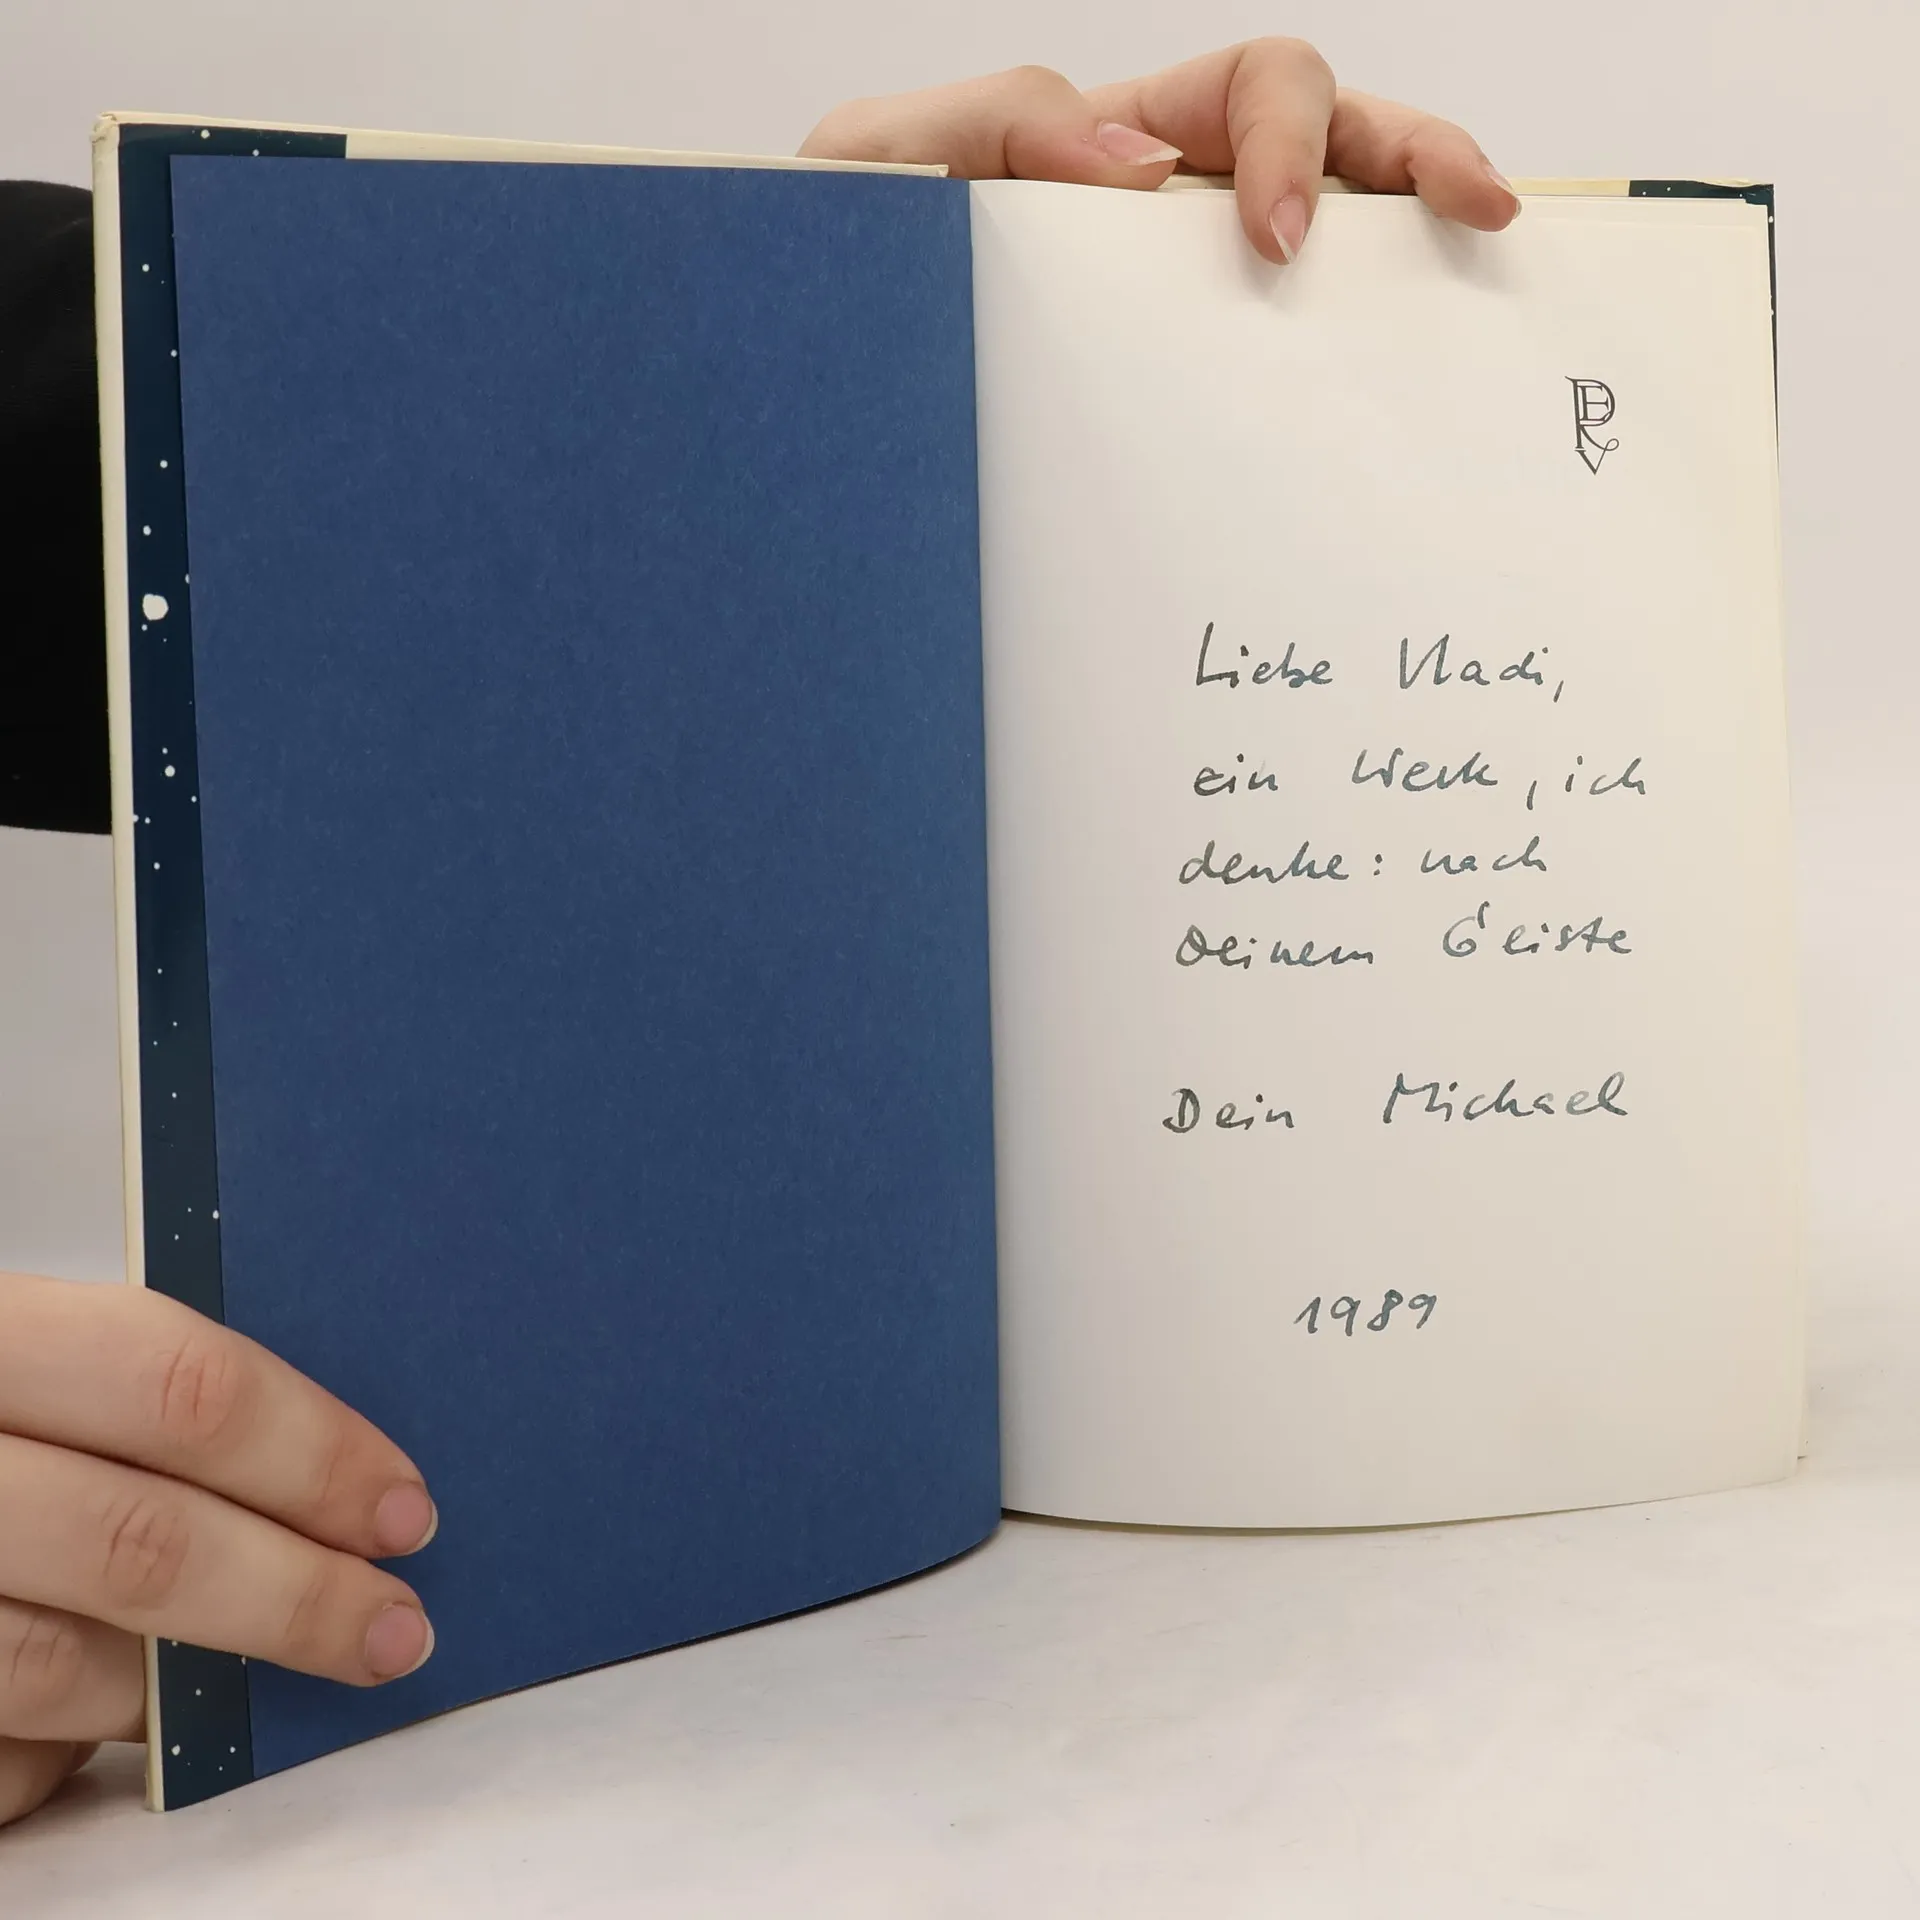 PERV
Liebe Vladi,
ein Werk, ich
denke: nach
Deinem Geiste
Dein Michael
1989